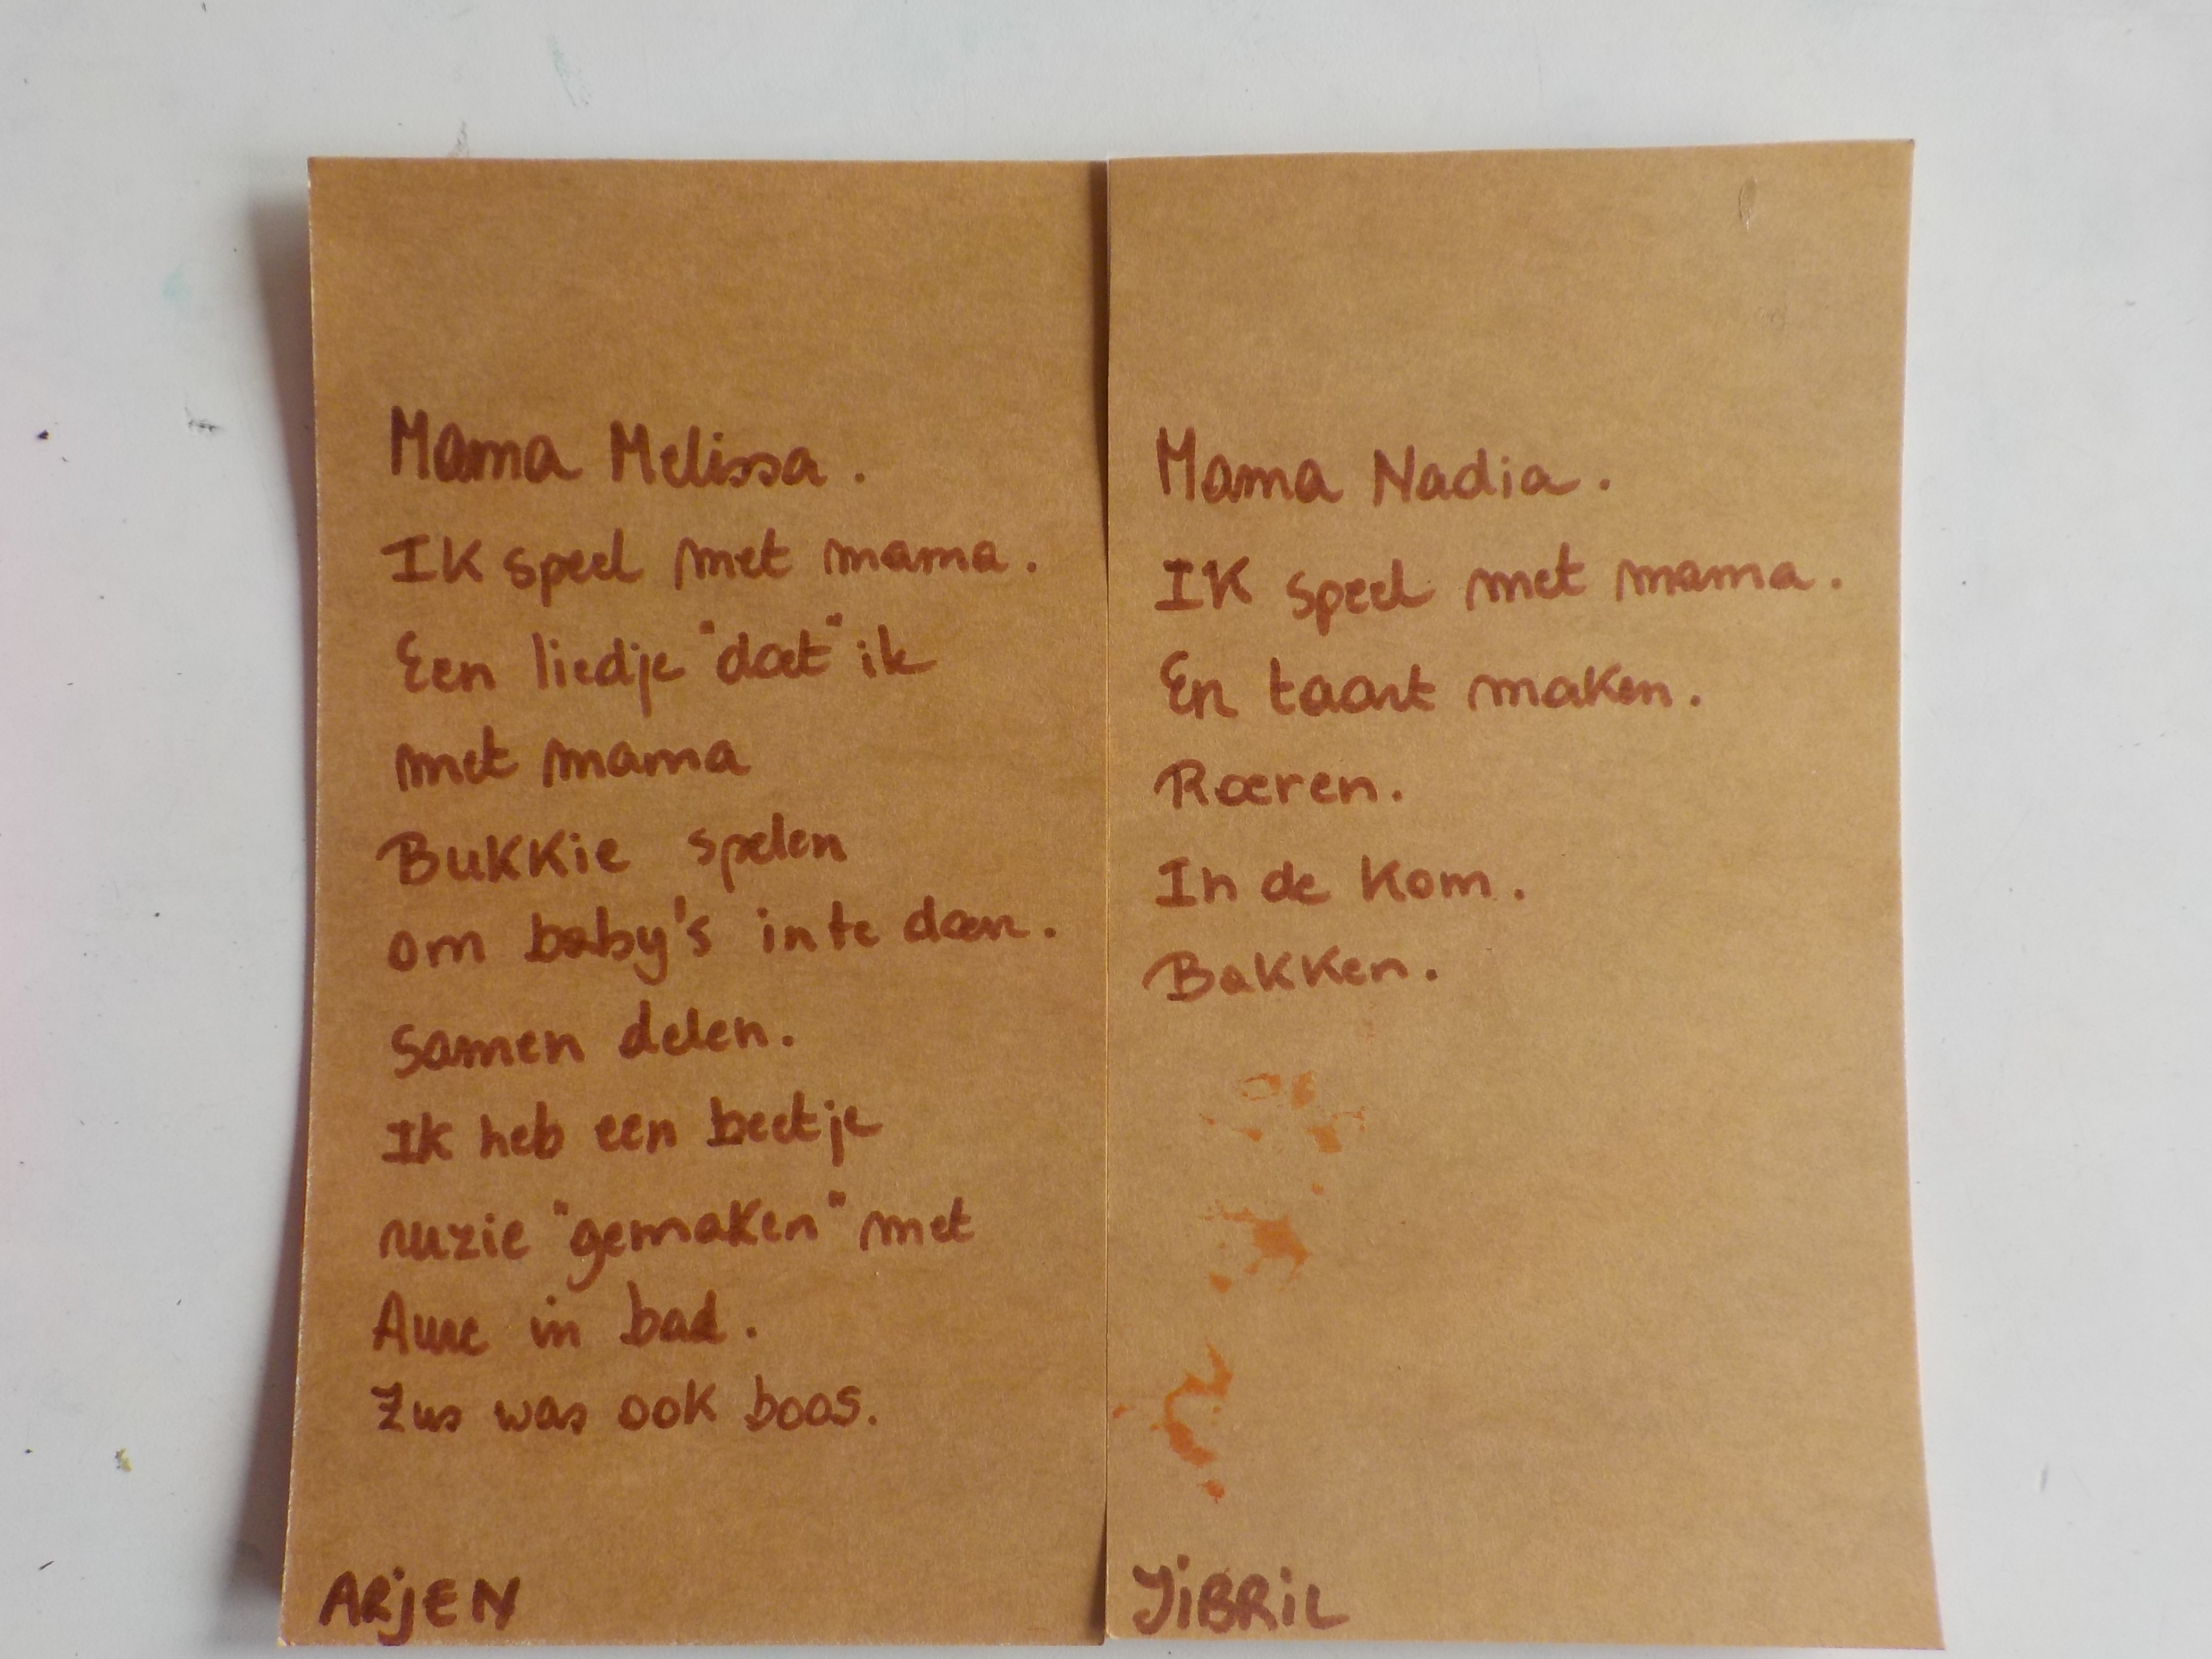 Mama Melissa.
Ik speel met mama.
Een liedje "doet" ik
met mama
Bukkie spelen
om baby's in te doen.
Samen delen.
Ik heb een beetje
ruzie "gemaken" met
in bad.
Zus was ook boos.
ARjEN
Mama Nadia.
Ik speel met mama.
En taart maken.
Roeren.
In de kom.
Bakken.
JiBRiL